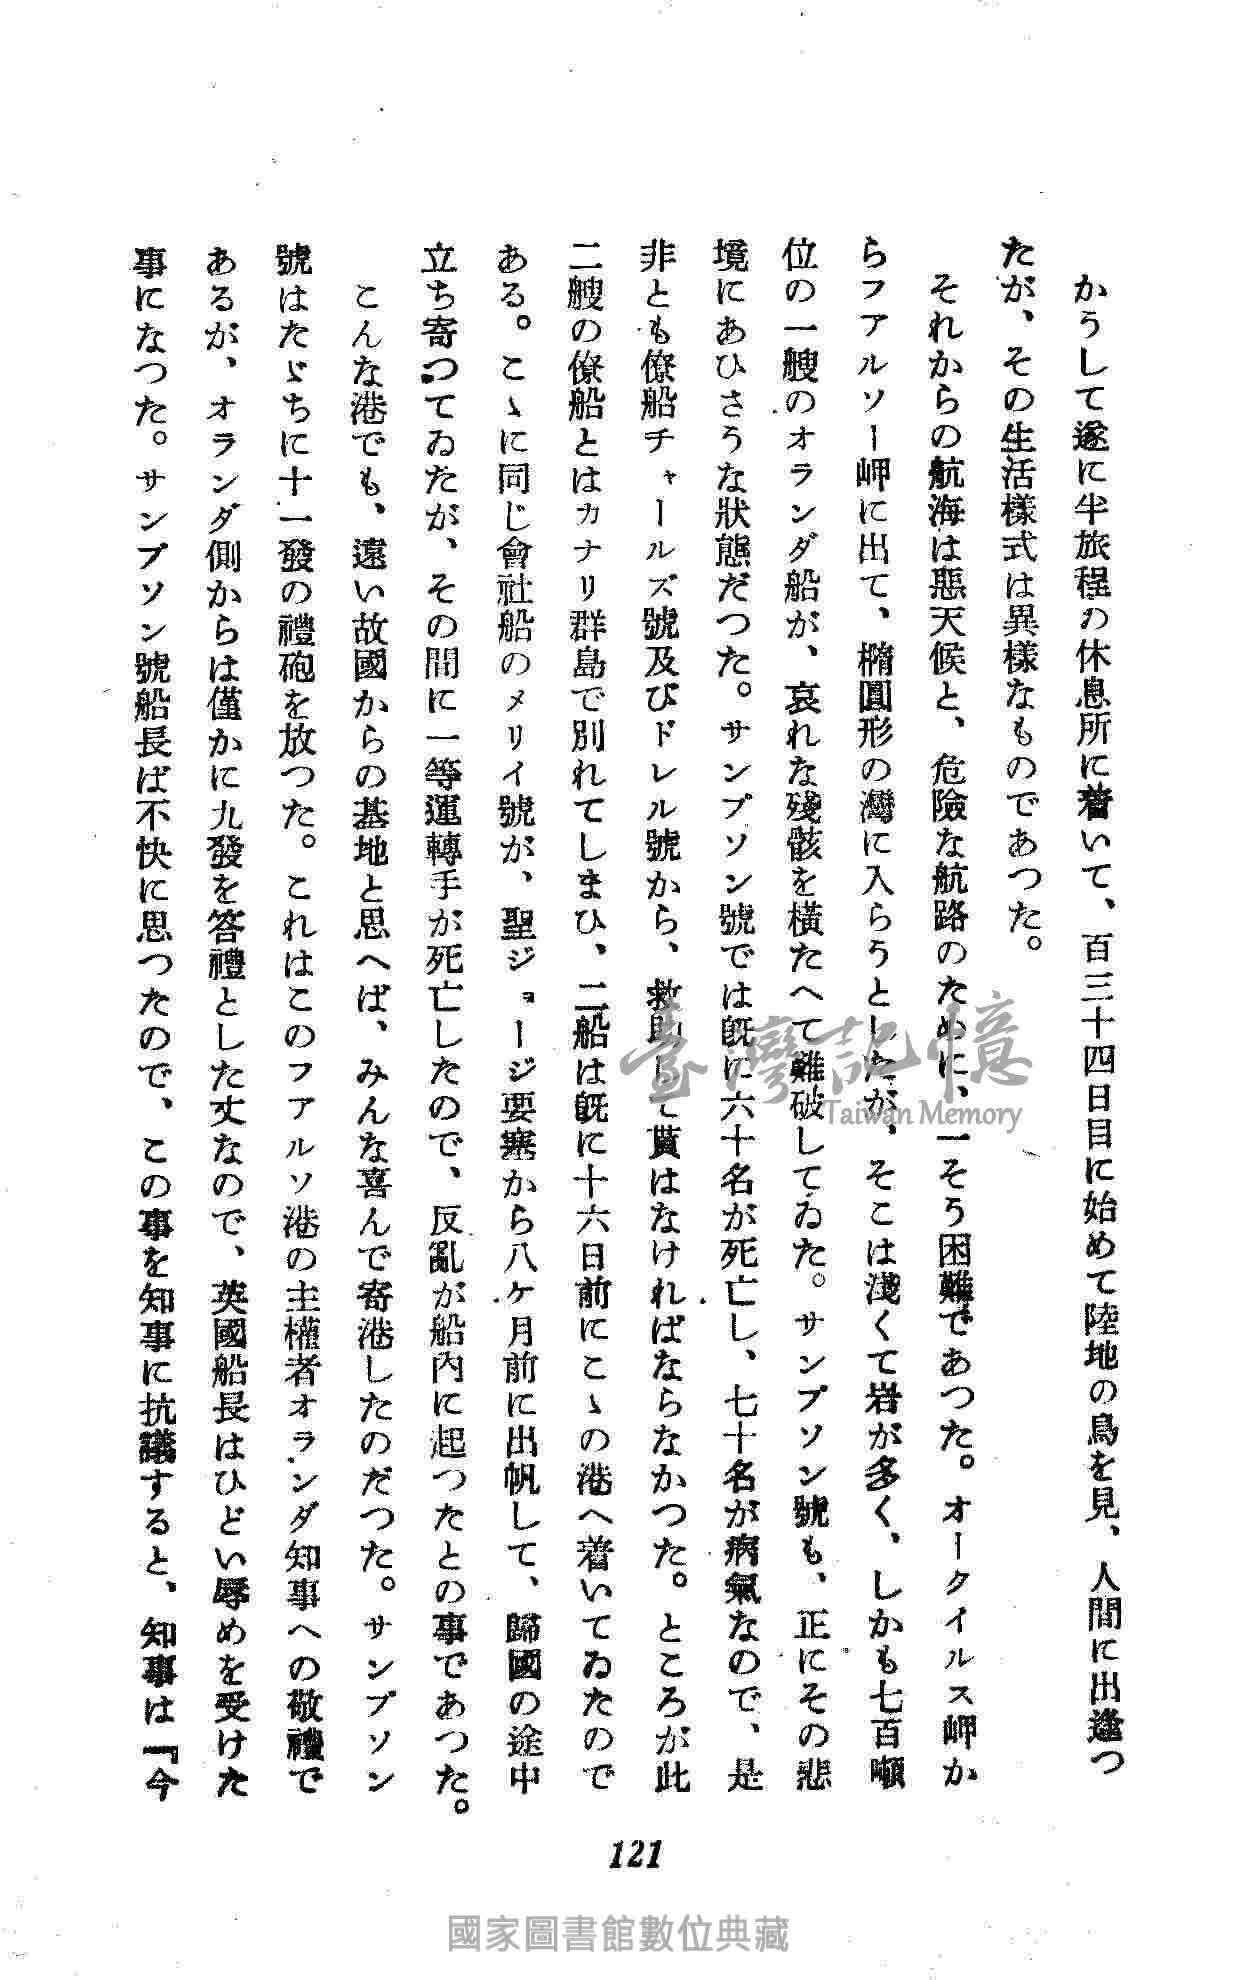 かうして遂に半旅程の休息所に着いて、百三十四日目に始めて陸地の鳥を見、人間に出逢つ
たが、その生活樣式は異樣なものであつた。
それからの航海は惡天候と、危險な航路のために、一そう困難であつた。オークイルス岬か
らフアルソー岬に出て、橢圓形の灣に入らうとしたが、そこは淺くて岩が多く、しかも七百噸
位の一艘のオランダ船が、哀れな殘骸を橫たへて難破してゐた。サンプソン號も、正にその悲
境にあひさうな狀態だつた。サンプソン號では旣に六十名が死亡し、七十名が病氣なので、是
非とも僚船チャールズ號及びドレル號から、救助して貰はなければならなかつた。ところが此
二艘の僚船とはカナリ群島で別れてしまひ、二船は旣に十六日前にこゝの港へ着いてゐたので
ある。こゝに同じ會社船のメリイ號が、聖ジョージ要塞から八ケ月前に出帆して、歸國の途中
立ち寄つてゐたが、その間に一等運轉手が死亡したので、反亂が船內に起つたとの事であつた。
こんな港でも、遠い故國からの基地と思へば、みんな喜んで寄港したのだつた。サンプソン
號はたゞちに十一發の禮砲を放つた。これはこのフアルソ港の主權者オランダ知事への敬禮で
あるが、オランダ側からは僅かに九發を答禮とした丈なので、英國船長はひどい辱めを受けた
事になつた。サンプソン號船長ば不快に思つたので、この事を知事に抗議すると、知事は『今
121
臺灣記憶
Taiwan Memory
國家圖書館數位典藏